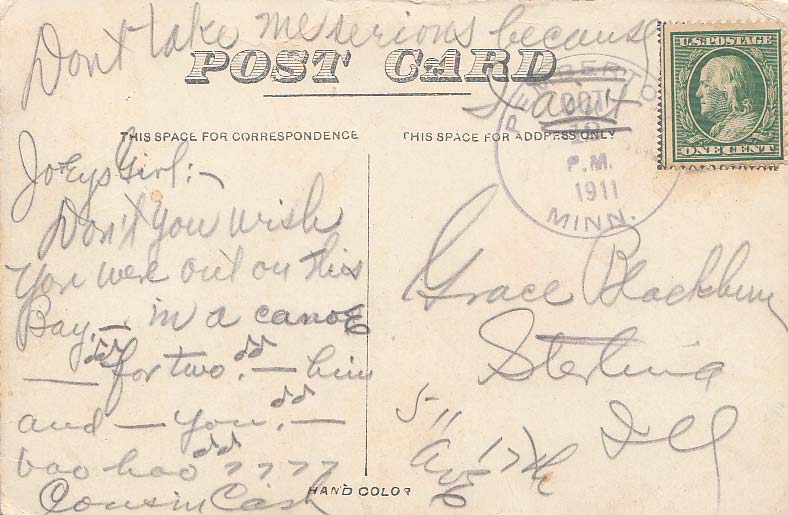 Dont take me serious because
POST CARD
I ain't
U.S. POSTAGE
ONE CENT
PEMBERTON
OCT
P.M.
1911
MINN.
THIS SPACE FOR CORRESPONDENCE
THIS SPACE FOR ADDRESS ONLY
Girl:~
Don't you wish
you were out on this
Bay. — in a canoe
— for two. — him
and — you. —
boo hoo ? ? ? ?
Cousin Cash
Grace Blackburn
Sterling
Ill
511
Ave 17th
HAND COLOR